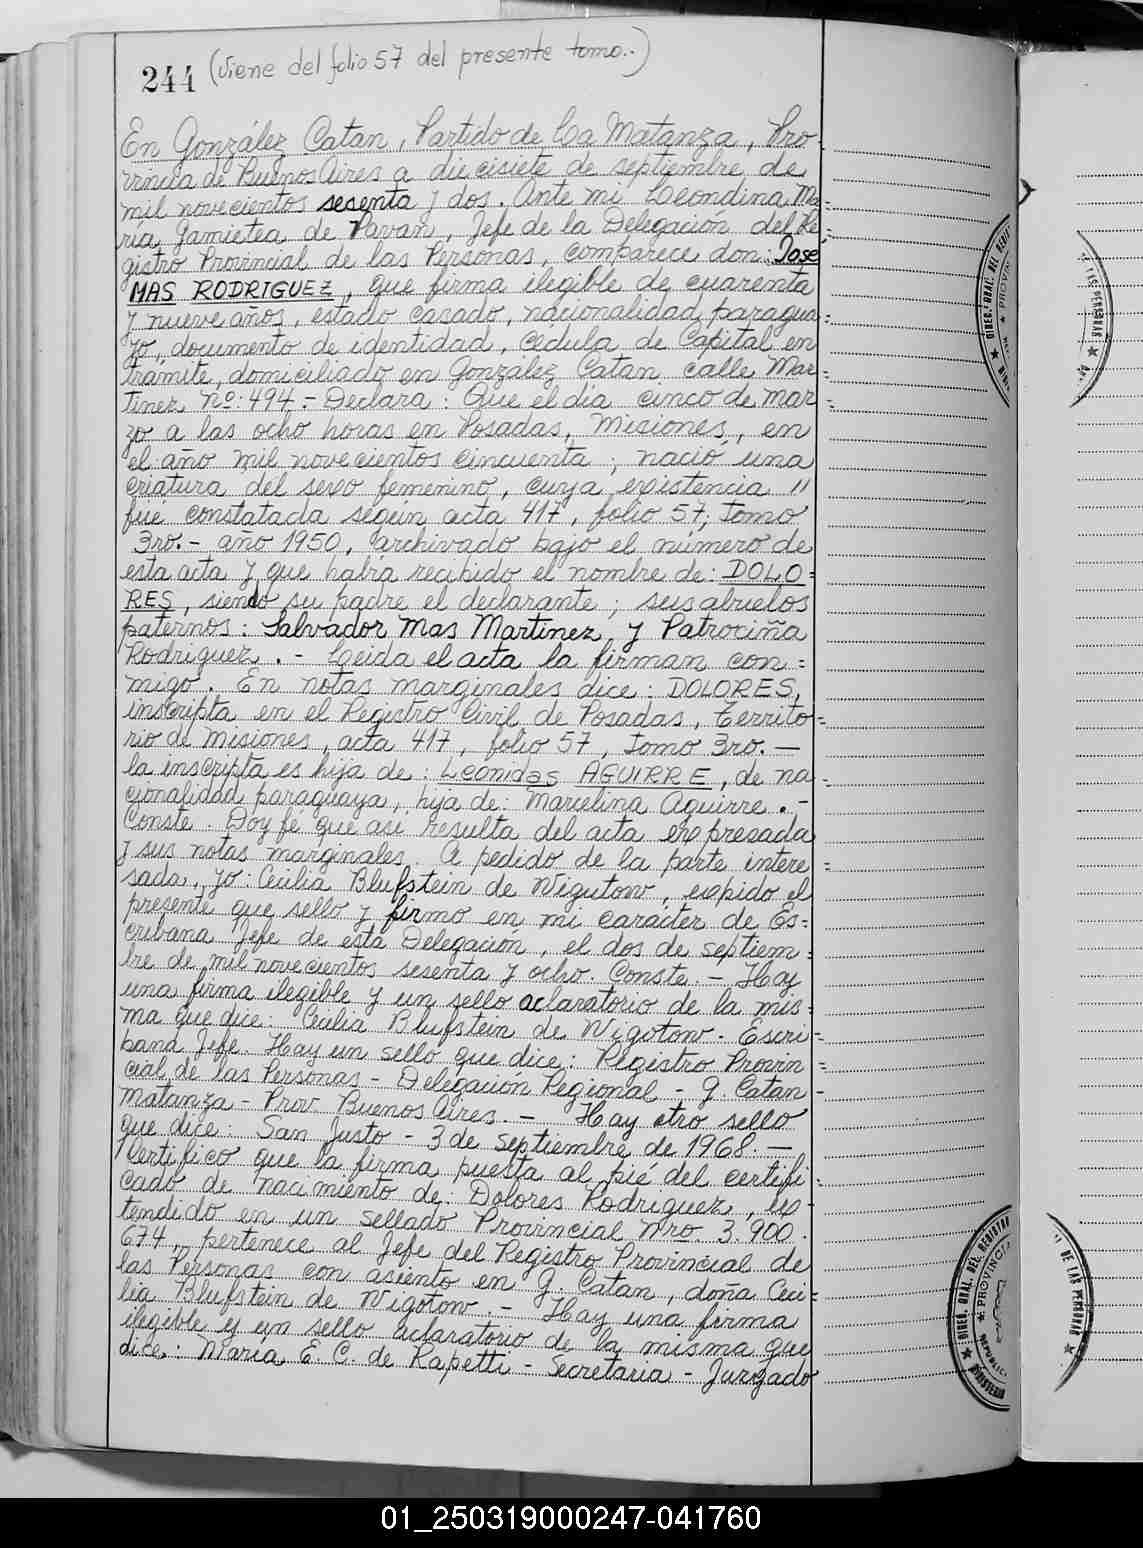 244 (Viene del folio 57 del presente tomo..)
En González Catan, Partido de La Matanza, Pro-
vincia de Buenos Aires a diecisiete de septiembre de
mil novecientos sesenta y dos. Ante mi Leondina Ma=
ria Gamietea de Pavan, Jefe de la Delegación del Re=
gistro Provincial de las Personas, comparece don: José
MAS RODRIGUEZ, que firma ilegible de cuarenta
y nueve años, estado casado, nacionalidad paragua=
yo, documento de identidad, cédula de Capital en
tramite, domiciliado en González Catan calle Mar=
tinez nº. 494.- Declara: Que el día cinco de mar=
zo a las ocho horas en Posadas, Misiones, en
el año mil novecientos cincuenta; nació una
criatura del sexo femenino, cuya existencia "
fué constatada según acta 417, folio 57; tomo
3ro.- año 1950, archivado bajo el número de
esta acta y que había recibido el nombre de: DOLO=
RES, siendo su padre el declarante; sus abuelos
paternos: Salvador Mas Martinez y Patrociña
Rodriguez.- Leida el acta la firman con=
migo. En notas marginales dice: DOLORES,
inscripta en el Registro Civil de Posadas, Territo=
rio de Misiones, acta 417, folio 57, tomo 3ro.—
la inscripta es hija de: Leonidas AGUIRRE, de na-
cionalidad paraguaya, hija de: Marcelina Aguirre.-
Conste. Doy fé que así resulta del acta expresada
y sus notas marginales. A pedido de la parte intere=
sada, yo: Cecilia Blufstein de Wigutow, expido el
presente que sello y firmo en mi carácter de Es=
cribana Jefe de esta Delegación, el dos de septiem=
bre de mil novecientos sesenta y ocho. Conste.- Hay
una firma ilegible y un sello aclaratorio de la mis=
ma que dice: Cecilia Blufstein de Wigotow. Escri-
bana Jefe. Hay un sello que dice: Registro Provin=
cial de las Personas - Delegación Regional - G. Catan-
Matanza - Prov. Buenos Aires.- Hay otro sello
que dice: San Justo - 3 de septiembre de 1968.—
Certifico que la firma puesta al pié del certifi=
cado de nacimiento de: Dolores Rodriguez, ex-
tendido en un sellado Provincial Nro. 3.900.
674, pertenece al Jefe del Registro Provincial de
las Personas con asiento en G. Catan, doña Ceci=
lia Blufstein de Wigotow.- Hay una firma
ilegible y un sello aclaratorio de la misma que
dice: Maria E. C. de Rapetti - Secretaria - Juzgado
DIREC. GRAL. DEL REGI
PROVIN
DE LAS PERSONAS
DIREC. GRAL. DEL REGISTRO
PROVINCIA
MINISTERIO
DE LAS PERSONAS
01_250319000247-041760